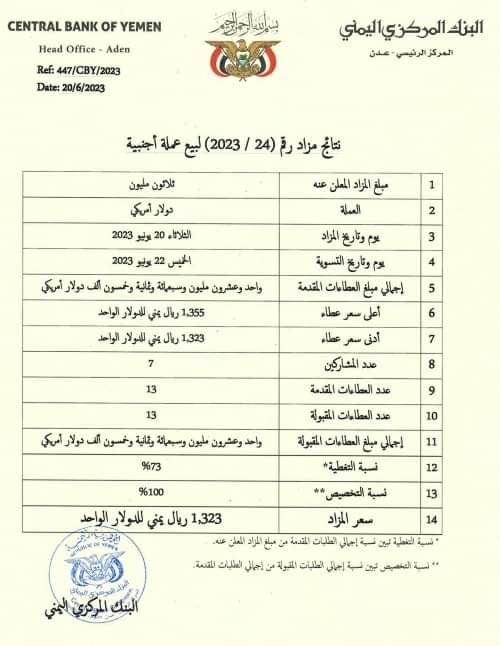 CENTRAL BANK OF YEMEN
Head Office - Aden
Ref: 447/CBY/2023
Date: 20/6/2023
بسم الله الرحمن الرحيم
البنك المركزي اليمني
المركز الرئيسي - عدن
نتائج مزاد رقم (24 / 2023) لبيع عملة أجنبية
1 مبلغ المزاد المعلن عنه ثلاثون مليون
2 العملة دولار أمريكي
3 يوم وتاريخ المزاد الثلاثاء 20 يونيو 2023
4 يوم وتاريخ التسوية الخميس 22 يونيو 2023
5 إجمالي مبلغ العطاءات المقدمة واحد وعشرون مليون وسبعمائة وثمانية وخمسون ألف دولار أمريكي
6 أعلى سعر عطاء 1,355 ريال يمني للدولار الواحد
7 أدنى سعر عطاء 1,323 ريال يمني للدولار الواحد
8 عدد المشاركين 7
9 عدد العطاءات المقدمة 13
10 عدد العطاءات المقبولة 13
11 إجمالي مبلغ العطاءات المقبولة واحد وعشرون مليون وسبعمائة وثمانية وخمسون ألف دولار أمريكي
12 نسبة التغطية* 73%
13 نسبة التخصيص** 100%
14 سعر المزاد 1,323 ريال يمني للدولار الواحد
* نسبة التغطية تبين نسبة إجمالي الطلبات المقدمة من مبلغ المزاد المعلن عنه.
** نسبة التخصيص تبين نسبة إجمالي الطلبات المقبولة من إجمالي الطلبات المقدمة.
REPUBLIC OF YEMEN
البنك المركزي اليمني